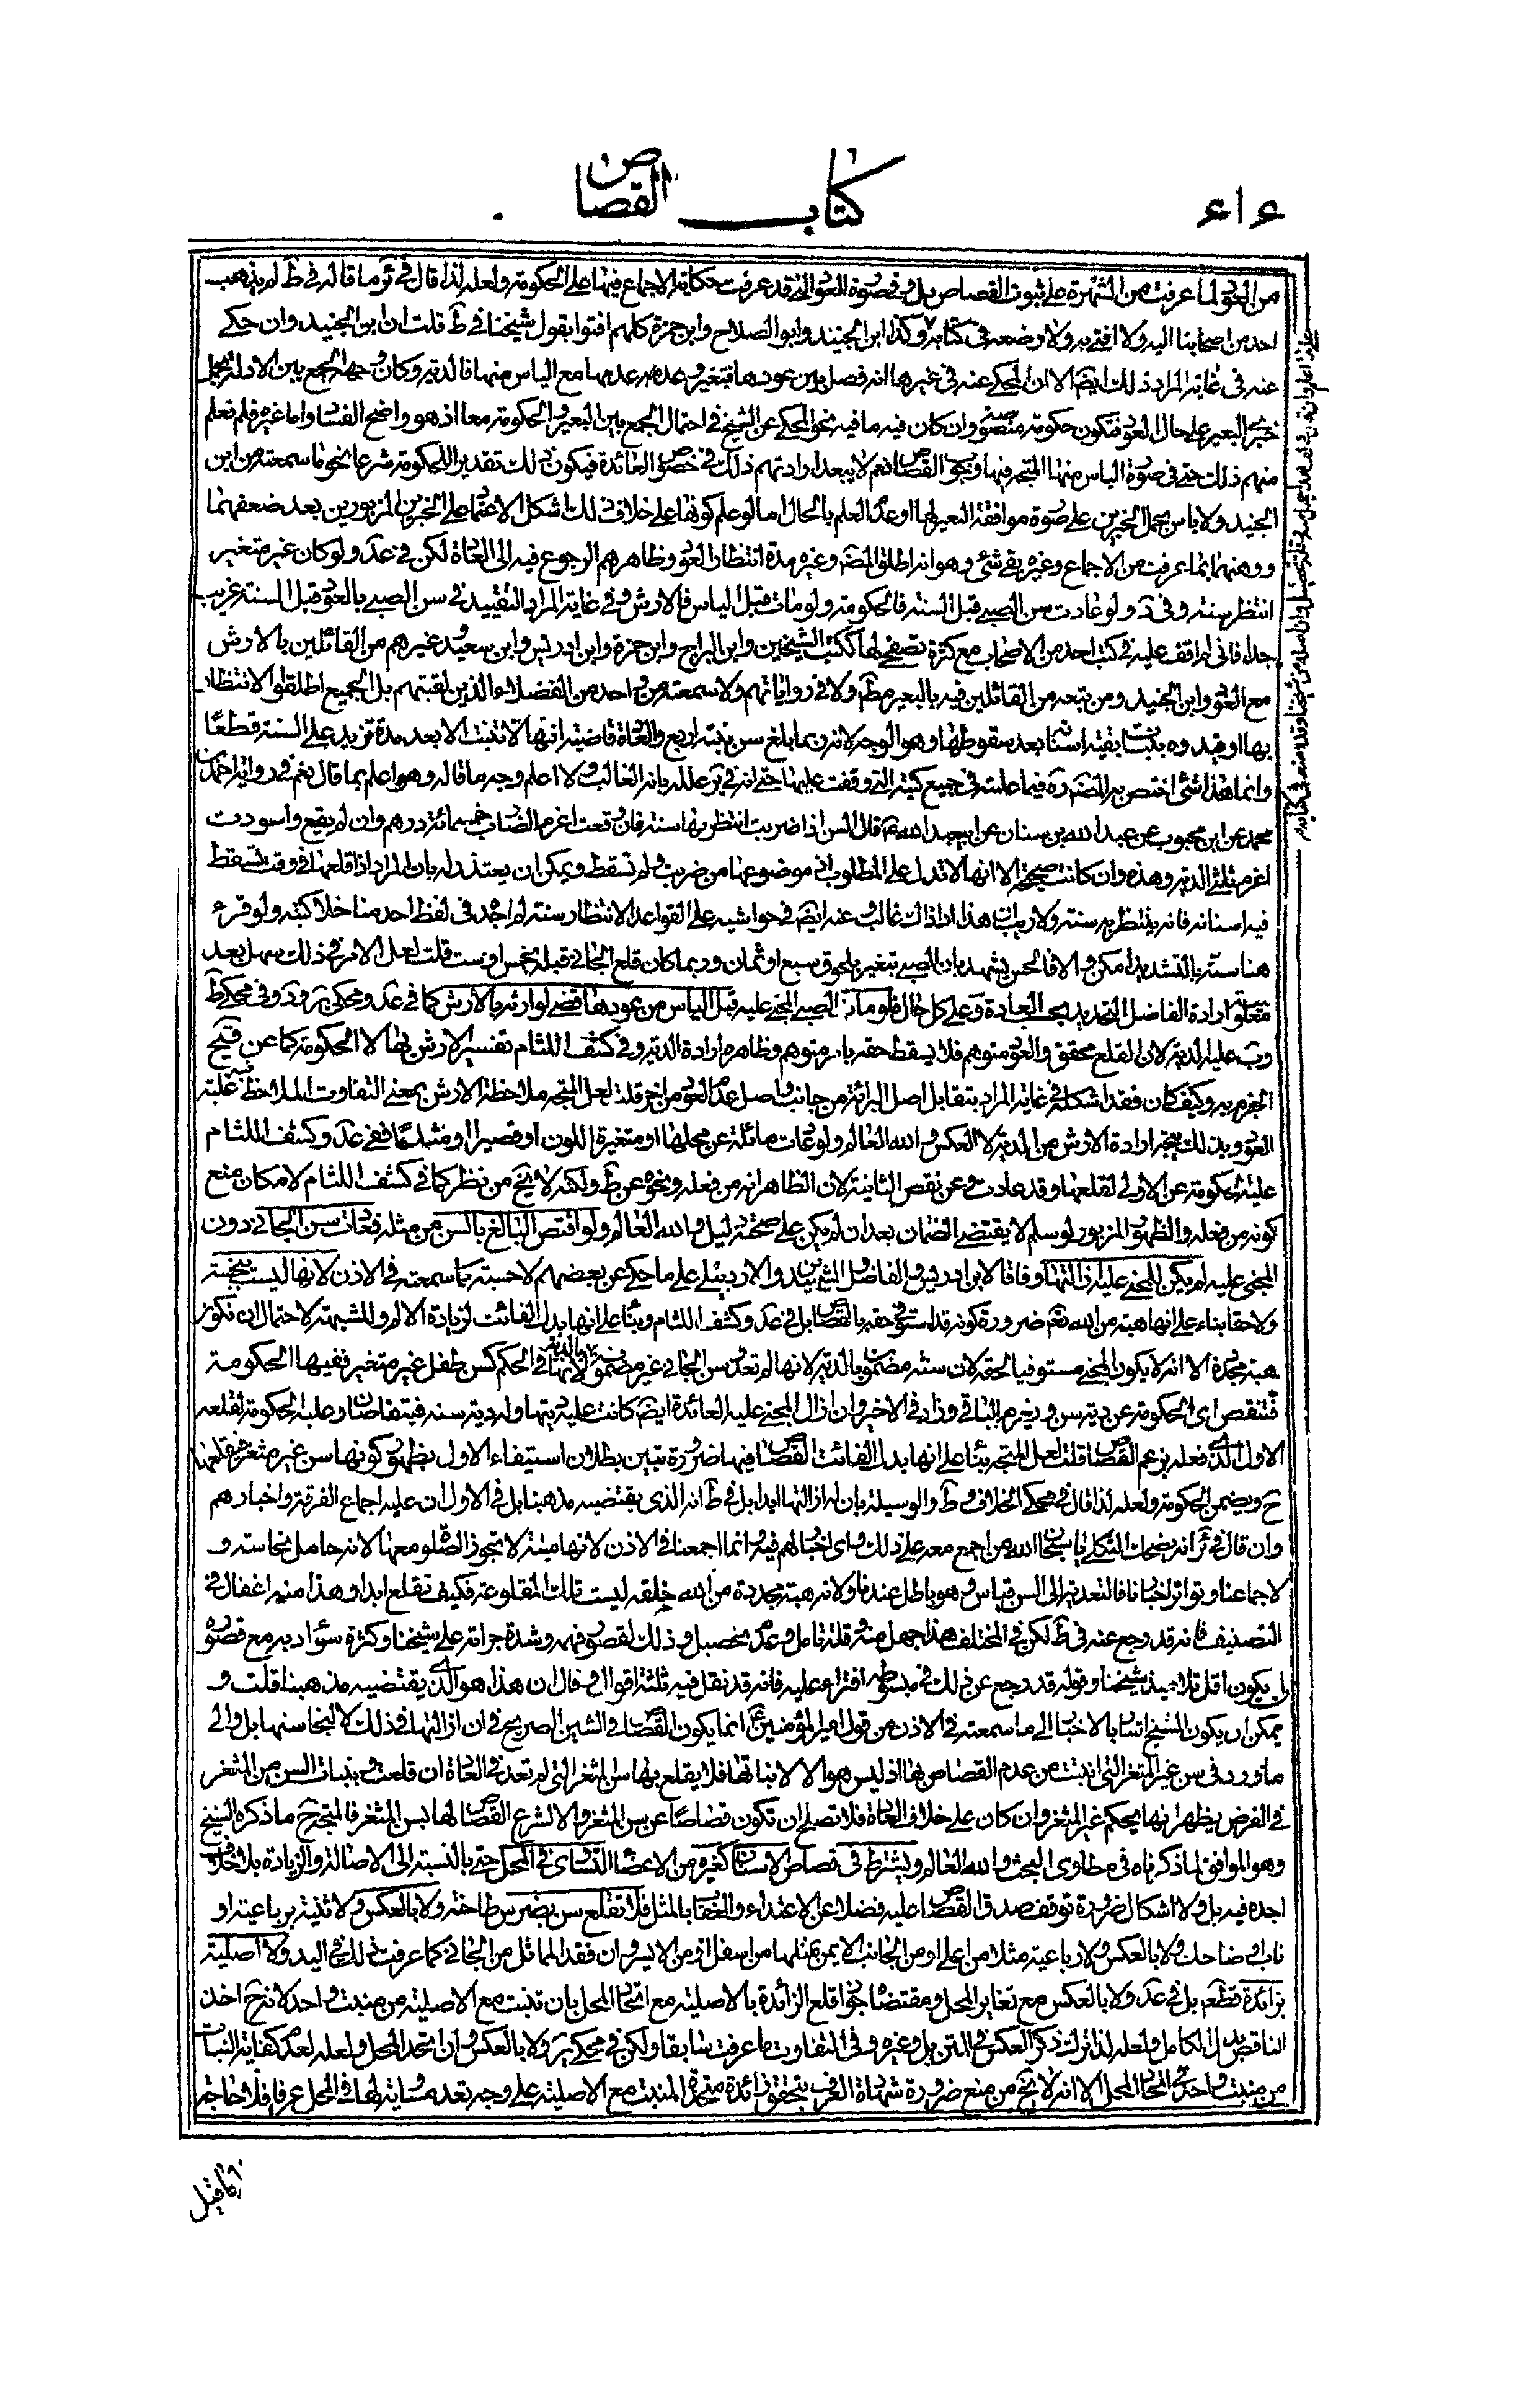 ٤١٤
كتاب القصاص
من العود لما عرفت من الشهرة على ثبوت القصاص بل وفي صورة العود التي قد عرفت حكاية الاجماع فيها على الحكومة ولعله لذا قال في ئر ما قاله في ط لم يذهب
احد من اصحابنا اليه ولا افتى به ولا وضعه في كتابه وكذا ابن الجنيد وابو الصلاح وابن حمزة كلهم افتوا بقول شيخنا في ط قلت ان ابن الجنيد وان حكى
عنه في غاية المراد ذلك ايضا الا ان المحكي عنه في غيرها انه فصل بين عودها فبعير وعدمه مع الياس منها فالدية وكان وجهه الجمع بين الادلة بحمل
خبري البعير على حال العود فتكون حكومة منصوصة وان كان فيه ما فيه نحو المحكي عن الشيخ في احتمال الجمع بين البعير والحكومة معا اذ هو واضح الفساد واما غيره فلم نعلم
منهم ذلك حتى في صورة الياس منها المتجه فيها وجوب القصاص نعم لا يبعد ارادتهم ذلك في خصوص العائدة فيكون ذلك تقدير للحكومة شرعا نحو ما سمعته من ابن
الجنيد ولا باس بحمل الخبرين على صورة موافقة البعير لها او عدم العلم بالحال اما لو علم كونها على خلاف ذلك اشكل الاعتماد على الخبرين المزبورين بعد ضعفهما
ووهنهما بما عرفت من الاجماع وغيره بقي شئ وهو انه اطلق المص وغيره مدة انتظار العود وظاهرهم الرجوع فيه الى العادة لكن في عد ولو كان غير متغير
انتظر سنة وفي د ولو عادت سن الصبي قبل السنة فالحكومة ولو مات قبل الياس فالارش وفي غاية المراد التقييد في سن الصبي بالعود قبل السنة غريب
جدا فاني لم اقف عليه في كتب احد من الاصحاب مع كثرة تصفحي لها ككتب الشيخين وابن البراج وابن حمزة وابن ادريس وابن سعيد وغيرهم من القائلين بالارش
مع العود وابن الجنيد ومن تبعه من القائلين فيه بالبعير مط ولا في رواياتهم ولا سمعته من احد من الفضلاء الذين لقيتهم بل الجميع اطلقوا الانتظار
بها او قيدوه بنبات بقية اسنانه بعد سقوطها وهو الوجه لانه ربما بلغ سن بنته اربع والعادة قاضية انها لا تنبت الا بعد مدة تزيد على السنة قطعا
وانما هذا شئ اختص به المص ره فيما علمته في جميع كتبه التي وقفت عليها حتى انه في ير علله بانه الغالب ولا اعلم وجه ما قاله وهو اعلم بما قال نعم في رواية احمد بن
محمد عن ابن محبوب عن عبد الله بن سنان عن ابي عبد الله ع قال السن اذا ضربت انتظر بها سنة فان وقعت اغرم الضارب خمسمائة درهم وان لم يقع واسودت
اغرم ثلثي الدية وهذه وان كانت صحيحة الا انها لا تدل على المطلوب اذ موضوعها من ضربت ولم تسقط ويمكن ان يعتذر له بان المراد اذا قلعها في وقت تسقط
فيه اسنانه فانه ينتظر به سنة ولا ريب ان هذا اذ ذاك غالب وعنه ايضا في حواشيه على القواعد الانتظار سنة لم اجد في لفظ احد منا خلا كتبه ولو قرء
هنا سنه بالتشديد امكن والا فالحس يشهد بان الصبي تتغير بلحوق سبع او ثمان وربما كان قلع الجاني قبله بخمس او ست قلت لعل الامر في ذلك سهل بعد
معلومية ارادة الفاضل التحديد بحسب العادة وعلى كل حال فلو مات الصبي المجني عليه قبل الياس من عودها قضي لوارثه بالارش كما في عد ومحكي ير ود وفي محكي ط
وب عليه الدية لان القلع محقق والعود متوهم فلا يسقط حقه بامر متوهم وظاهره ارادة الدية وفي كشف اللثام تفسير الارش بها لا الحكومة كما عن
الجزم به وكيف كان فقد اشكله في غاية المراد بتقابل اصل البرائة من جانب واصل عدم العود من اخر قلت لعل المتجه ملاحظة الارش بمعنى التفاوت الملاحظ فيه غلبة
العود وبذلك يتجه ارادة الارش من الدية لا العكس والله العالم ولو عادت مائلة عن محلها او متغيرة اللون او قصيرا او مثلمة ففي عد وكشف اللثام
عليه حكومة عن الاولى لقلعها وقد عادت وعن نقص الثانية لان الظاهر انه من فعله ونحوه عن ط ولكنه لا يخ من نظر كما في كشف اللثام لامكان منع
كونه من فعله والظهور المزبور لو سلم لا يقتضي الضمان بعد ان لم يكن على صحته دليل والله العالم ولو اقتص البالغ بالسن من مثله فعادت سن الجاني دون
المجني عليه لم يكن للمجني عليه ازالتها وفاقا لابن ادريس والفاضل والشهيدين والاردبيلي على ما حكي عن بعضهم لا حسبة كما سمعته في الاذن لانها ليست بنجسة
ولا حقا بناء على انها هبة من الله نعم ضرورة كونه قد استوفى حقه بالقصاص بل في عد وكشف اللثام وبناء على انها بدل الفائت لزيادة الالم وللشبهة لاحتمال ان تكون
هبة مجددة الا انه لا يكون المجني مستوفيا لحقه لان سنه مضمون بالدية لانها لم تعد وسن الجاني غير مضمونة بالدية لانها في الحكم كسن طفل غير متغير ففيها الحكومة
فتنقص اي الحكومة عن دية سن ويغرم الباقي وزاد في الاخير وان ازال المجني عليه العائدة ايضا كانت عليه ديتها وله دية سنه فيتقاصان وعليه الحكومة لقلعه
الاول الذي فعله بزعم القصاص قلت لعل المتجه بناء على انها بدل الفائت القصاص فيها ضرورة تبين بطلان استيفاء الاول بظهور كونها سن غير مثغر فيقلعها
ح ويضمن الحكومة ولعله لذا قال في محكي الخلاف وط والوسيلة بان له ازالتها ابدا بل في ط انه الذي يقتضيه مذهبنا بل في الاول ان عليه اجماع الفرقة واخبارهم
وان قال في ئر انه يضحك الثكلى يا سبحان الله من اجمع معه على ذلك واي اخبار لهم فيه وانما اجمعنا في الاذن لانها ميتة لا تجوز الصلوة معها لانه حامل نجاسة و
لاجماعنا وتواتر اخبارنا فالتعدية الى السن قياس وهو باطل عندنا ولانه هبة مجددة من الله خلقه ليست تلك المقلوعة فكيف تقلع ابدا وهذا منه اغفال في
التصنيف فانه قد رجع عنه في ط لكن في المختلف هذا جهل منه وقلة تامل وعدم تحصيل وذلك لقصور فهمه وشدة جراته على شيخنا وكثرة سوء ادبه مع قصوره
ان يكون اقل تلاميذ شيخنا وقوله قد رجع عن ذلك في مبسوطه افتراء عليه فانه قد نقل فيه ثلثة اقوال وقال ان هذا هو الذي يقتضيه مذهبنا قلت و
يمكن ان يكون الشيخ اشار بالاخبار الى ما سمعته في الاذن من قول امير المؤمنين ع انما يكون القصاص في الشين الصريح في ان ازالتها في ذلك لا لنجاستها بل والى
ما ورد في سن غير المثغر التي انبتت من عدم القصاص بها اذ ليس هو الا لانباتها فلا يقلع بها سن المثغر التي لم تعد في العادة ان قلعت وبنبات السن من المثغر
في الفرض يظهر انها بحكم غير المثغر وان كان على خلاف العادة فلا تصلح ان تكون قصاصا عن سن المثغر والا لشرع القصاص لها بسن المثغر فالمتجه ح ما ذكره الشيخ
وهو الموافق لما ذكرناه في مطاوي البحث والله العالم ويشترط في قصاص الاسنان كغيره من الاعضاء التساوي في المحل حتى بالنسبة الى الاصالة والزيادة بلا خلاف
اجده فيه بل ولا اشكال ضرورة توقف صدق القصاص عليه فضلا عن الاعتداء والعقاب بالمثل فلا تقلع سن بضرس طاحنة ولا بالعكس ولا ثنية برباعية او
ناب او ضاحك ولا بالعكس ولا رباعية مثلا من اعلى او من الجانب الايمن بمثلها من اسفل او من الايسر وان فقد المماثل من الجاني كما عرفت ذلك في اليد ولا اصلية
بزائدة قطعا بل في عد ولا بالعكس مع تغاير المحل ومقتضاه جواز قلع الزائدة بالاصلية مع اتحاد المحل بان تنبت مع الاصلية من منبت واحد لانه ح اخذ
الناقص بدل الكامل ولعله لذا ترك ذكر العكس في المتن بل وغيره وفي التفاوت ما عرفت سابقا ولكن في محكي ير ولا بالعكس وان اتحد المحل ولعله لعدم كفاية النبات
من منبت واحد في اتحاد المحل الا انه لا يخ من منع ضرورة شهادة العرف بتحقق زائدة متحدة المنبت مع الاصلية على وجه تعد مساوية لها في المحل عرفا فلا حاجة